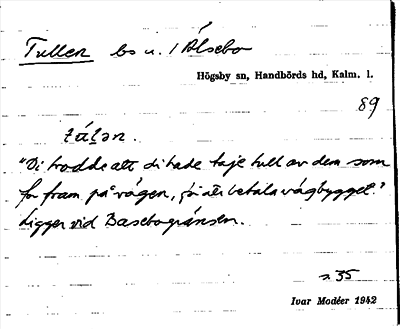 Tullen bs u. / Älsebo
Högsby sn, Handbörds hd, Kalm. l.
89
tú̱lən.
"Di trodde att di hade taje tull av dem som
for fram på vägen, för att betala vägbygget."
Ligger vid Basebogränsen.
s. 35
Ivar Modéer 1942